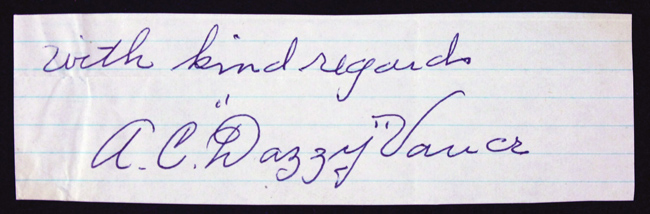 with kind regards
A. C. "Dazzy" Vance